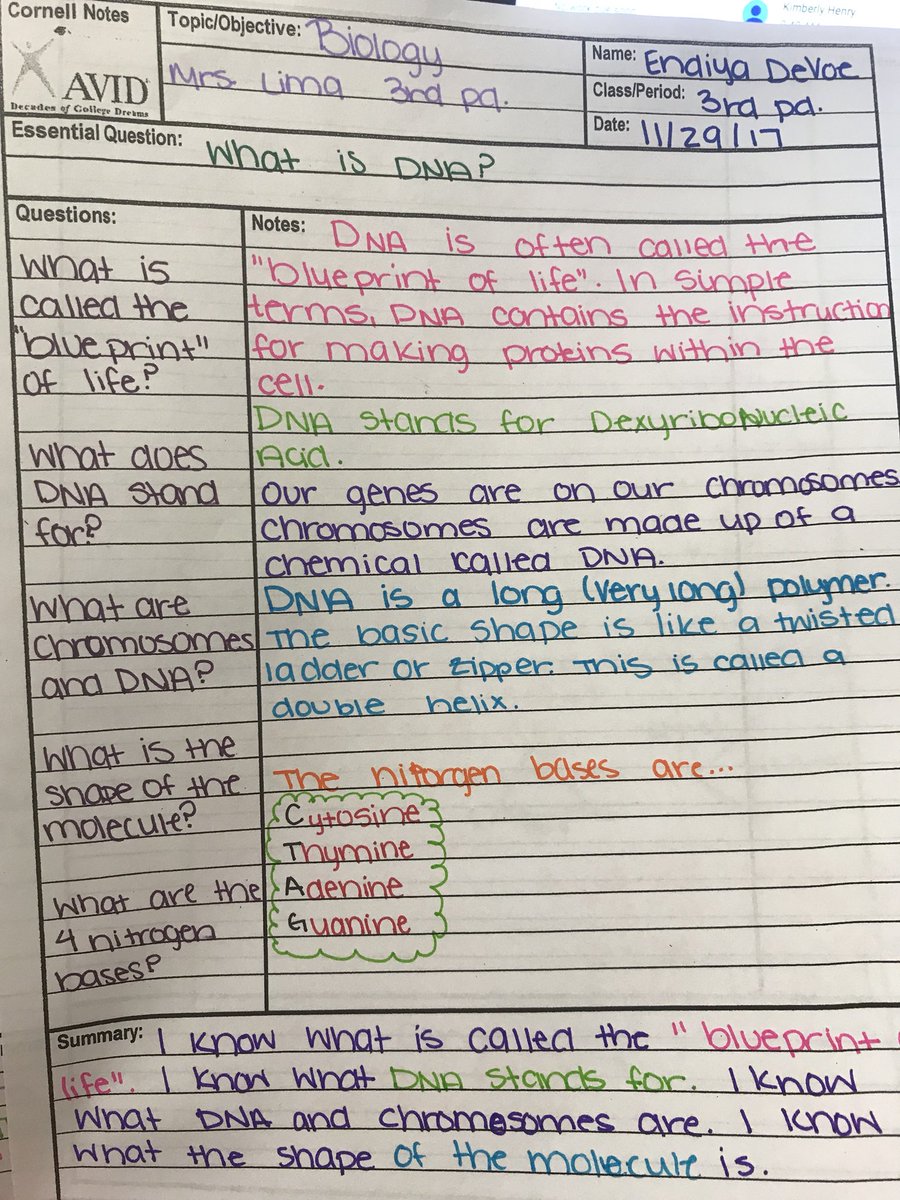 Kimberly Henry
Cornell Notes
AVID
Decades of College Dreams
Topic/Objective: Biology
Mrs. Lima 3rd pd.
Name: Endiya DeVoe
Class/Period: 3rd pd.
Date: 11/29/17
Essential Question: What is DNA?
Questions:
What is
called the
"blueprint"
of life?
What does
DNA stand
for?
What are
chromosomes
and DNA?
What is the
shape of the
molecule?
What are the
4 nitrogen
bases?
Notes: DNA is often called the
"blueprint of life". In simple
terms, DNA contains the instruction
for making proteins within the
cell.
DNA stands for DexyriboNucleic
Acid.
Our genes are on our chromosomes
chromosomes are made up of a
chemical called DNA.
DNA is a long (very long) polymer.
The basic shape is like a twisted
ladder or zipper. This is called a
double helix.
The nitorgen bases are...
Cytosine
Thymine
Adenine
Guanine
Summary: I know what is called the "blueprint
life". I know what DNA stands for. I know
what DNA and chromesomes are. I know
what the shape of the molecule is.